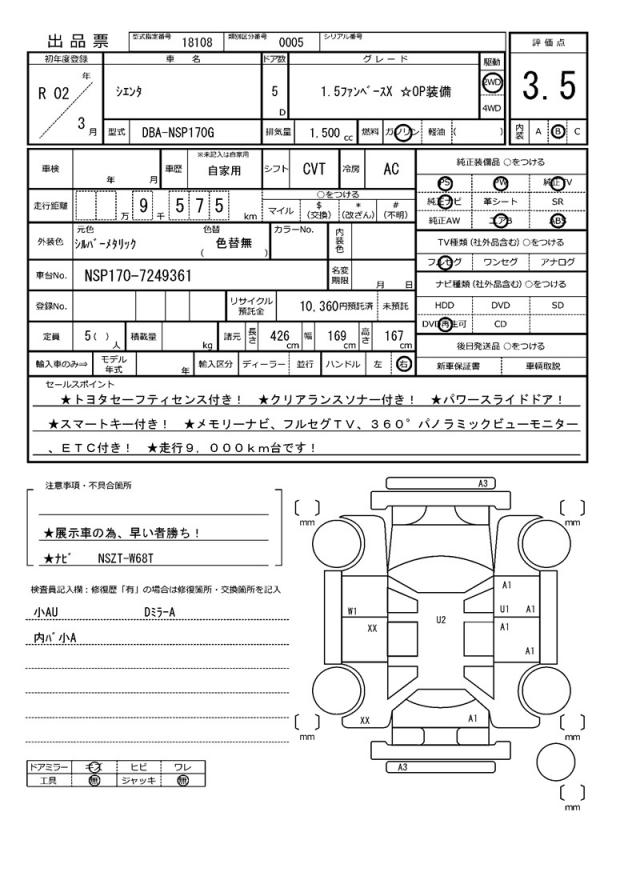 出品票 型式指定番号 18108 類別区分番号 0005 シリアル番号
評価点
3.5
内装 A B C
初年度登録 車名 ドア数 グレード 駆動
R 02 年 3 月
シエンタ 5 D 1.5ファンベースX ☆OP装備 2WD
4WD
型式 DBA-NSP170G 排気量 1.500 cc 燃料 ガソリン 軽油 ( )
車検 年 月 車歴 ※未記入は自家用 自家用 シフト CVT 冷房 AC
純正装備品 ○をつける
PS PW 純正TV
純正ナビ 革シート SR
純正AW エアB ABS
走行距離 万 9 千 5 7 5 km
○をつける
マイル $ (交換) * (改ざん) # (不明)
外装色 元色 シルバーメタリック 色替 ( 色替無 ) カラーNo. 内装色
TV種類(社外品含む)○をつける
フルセグ ワンセグ アナログ
車台No. NSP170-7249361 名変期限 月 日
ナビ種類(社外品含む)○をつける
HDD DVD SD
DVD再生可 CD
登録No. リサイクル預託金 10,360円預託済 未預託
定員 5( ) 人 積載量 kg 諸元 長さ 426 cm 幅 169 cm 高さ 167 cm
後日発送品 ○をつける
新車保証書 車輌取説
輸入車のみ⇒ モデル年式 年 輸入区分 ディーラー 並行 ハンドル 左 右
セールスポイント
★トヨタセーフティセンス付き! ★クリアランスソナー付き! ★パワースライドドア!
★スマートキー付き! ★メモリーナビ、フルセグTV、360°パノラミックビューモニター
、ETC付き! ★走行9,000km台です!
注意事項・不具合箇所
★展示車の為、早い者勝ち!
★ナビ NSZT-W68T
検査員記入欄:修復歴「有」の場合は修復箇所・交換箇所を記入
小AU Dミラ-A
内バ小A
ドアミラー キズ ヒビ ワレ
工具 無 ジャッキ 無
A3
mm
mm
A1
W1
U1 A1
XX
U2
A1
A1
XX
A1
mm
mm
A3
mm